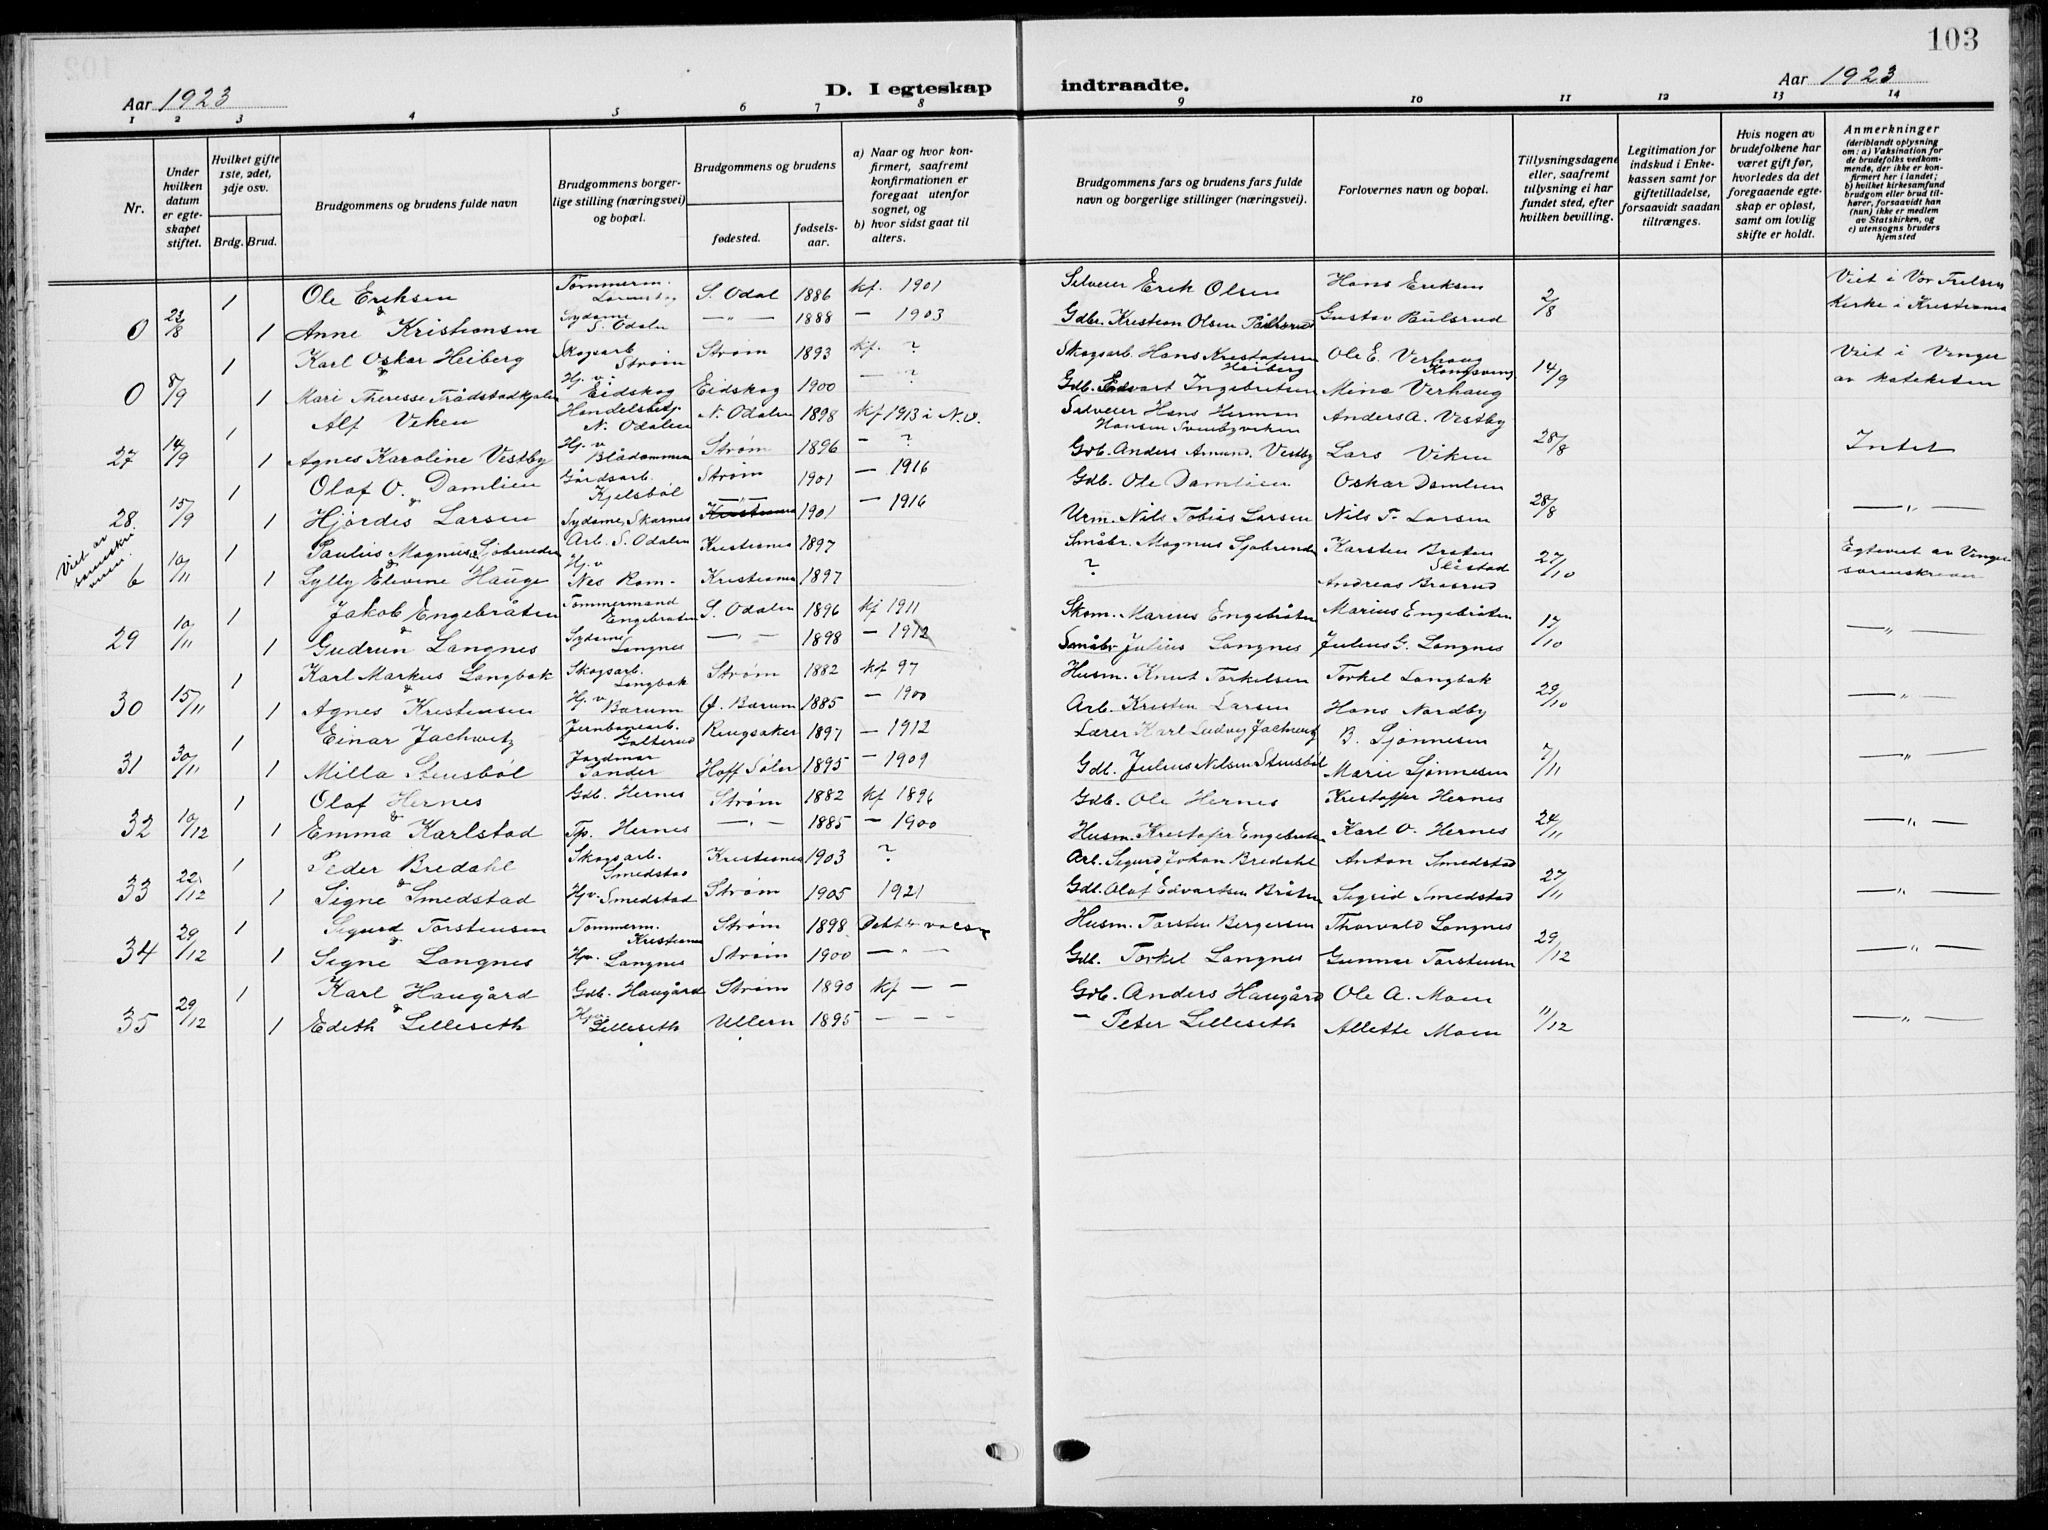 103
Aar 1923 D. I egteskap indtraadte. Aar 1923
1 2 3 4 5 6 7 8 9 10 11 12 13 14
Nr.
Under hvilken datum er egteskapet stiftet.
Hvilket gifte 1ste, 2det, 3dje osv.
Brdg. Brud.
Brudgommens og brudens fulde navn
Brudgommens borgerlige stilling (næringsvei) og bopæl.
Brudgommens og brudens
fødested.
fødselsaar.
a) Naar og hvor konfirmert, saafremt konfirmationen er foregaat utenfor sognet, og
b) hvor sidst gaat til alters.
Brudgommens fars og brudens fars fulde navn og borgerlige stillinger (næringsvei).
Forlovernes navn og bopæl.
Tillysningsdagene eller, saafremt tillysning ei har fundet sted, efter hvilken bevilling.
Legitimation for indskud i Enkekassen samt for giftetilladelse, forsaavidt saadan tiltrænges.
Hvis nogen av brudefolkene har været gift før, hvorledes da det foregaaende egteskap er opløst, samt om lovlig skifte er holdt.
Anmerkninger
(deriblandt oplysning om: a) Vaksination for de brudefolks vedkommende, der ikke er konfirmert her i landet; b) hvilket kirkesamfund brudgom eller brud tilhører, forsaavidt han (hun) ikke er medlem av Statskirken, og c) utensogns bruders hjemsted
1 Ole Eriksen Tømmerm. S. Odal 1886 kf. 1901 Selveier Erik Olsen Hans Eriksen Viet i Vor Frelsers
0 23/8 1 & Anne Kristiansen Sydame S. Odalen — " — 1888 — 1903 Gdbr. Kristian Olsen Gustav Bulsrud 2/8 Kirke i Kristiania
1 Karl Oskar Heiberg Skogsarb. Strøm Strøm 1893 kf. ? Skogsarb. Hans Kristofersen Heiberg Ole E. Verhaug Kongsving. Viet i Vinger
0 8/9 1 & Mari Theresse Trådstadkjølen Hj. v. Eidskog Eidskog 1900 — ? Gdb. Edvart Ingebretsen Mina Verhaug 14/9 av kateketen
1 Alf Viken Handelsbetj. N. Odalen N. Odalen 1898 kf 1913 i N.O. Selveier Hans Herman Hansen Svenbyviken Anders A. Vestby
27 14/9 1 Agnes Karoline Vestby Hj. v. Strøm 1896 — ? Gdb. Anders Amund. Vestby Lars Viken 28/8 Intet
1 Olaf O. Damlien Gårdsarb. Kjelsbøl Strøm 1901 — 1916 Gdb. Ole Damlien Oskar Damlien
28. 15/9 1 & Hjørdis Larsen Sydame, Skarnes Kristiania 1901 — 1916 Urm. Nils Tobias Larsen Nils T. Larsen 28/8 — " —
Viet av sorenskriveren
1 Paulus Magnus Sjøbrenden Arb. S. Odalen Kristiania 1897 Småbr. Magnus Sjøbrenden Karsten Braten Slåstad Egteviet av Vinger
6 10/11 1 & Lylly Elevine Hauge Hj. v. Nes Rom. Kristiania 1897 ? Andreas Brosrud 27/10 sorenskriver
1 Jakob Engebråten Tømmermand Engebraten S. Odalen 1896 kf 1911 Skom. Marius Engebråten Marius Engebråten
29 10/11 1 & Gudrun Langnes Sydame, Langnes — " — 1898 — 1912 Småbr. Julius Langnes Julius G. Langnes 17/10 — " —
1 Karl Markus Langbak Skogsarb. Langbak Strøm 1882 kf 97 Husm. Knut Torkelsen Torkel Langbak
30 15/11 1 & Agnes Kristensen Hj. v. Bærum Ø. Bærum 1885 — 1900 Arb. Kristen Larsen Hans Nordby 29/10 — " —
1 Einar Jachwitz Jernbanearb. Galterud Ringsaker 1897 — 1912 Lærer Karl Ludvig Jachwitz B. Sjønnesen
31 30/11 1 Milla Stensbøl Jordmor Sander Hoff Solør 1895 — 1909 Gdb. Julius Nilsen Stensbøl Marie Sjønnesen 7/11 — " —
1 Olaf Hernes Gdb. Hernes Strøm 1882 kf 1896 Gdb. Ole Hernes Kristoffer Hernes
32 10/12 1 & Emma Karlstad Tp. Hernes — " — 1885 — 1900 Husm. Kristofer Engebretsen Karl O. Hernes 24/11 — " —
1 Peder Bredahl Skogsarb. Smedstad Kristiania 1903 ? Arb. Sigurd Johan Bredahl Anton Smedstad
33 22/12 1 & Signe Smedstad Hjv. Smedstad Strøm 1905 1921 Gdb. Olaf Edvartsen Bråten Sigrid Smedstad 27/11 — " —
1 Sigurd Torstensen Tømmerm. Kristiania Strøm 1898 Husm. Torsten Bergersen Thorvald Langnes
34 29/12 1 & Signe Langnes Hjv. Langnes Strøm 1900 — " — Gdb. Torkel Langnes Gunnar Torstensen 29/12 — " —
1 Karl Haugård Gdb. Haugård Strøm 1890 kf — — Gdb. Anders Haugård Ole A. Moen
35 29/12 1 & Edith Lilleseth Hjv. Lilleseth Ullern 1895 — — — — Peter Lilleseth Allette Moen 11/12 — " —